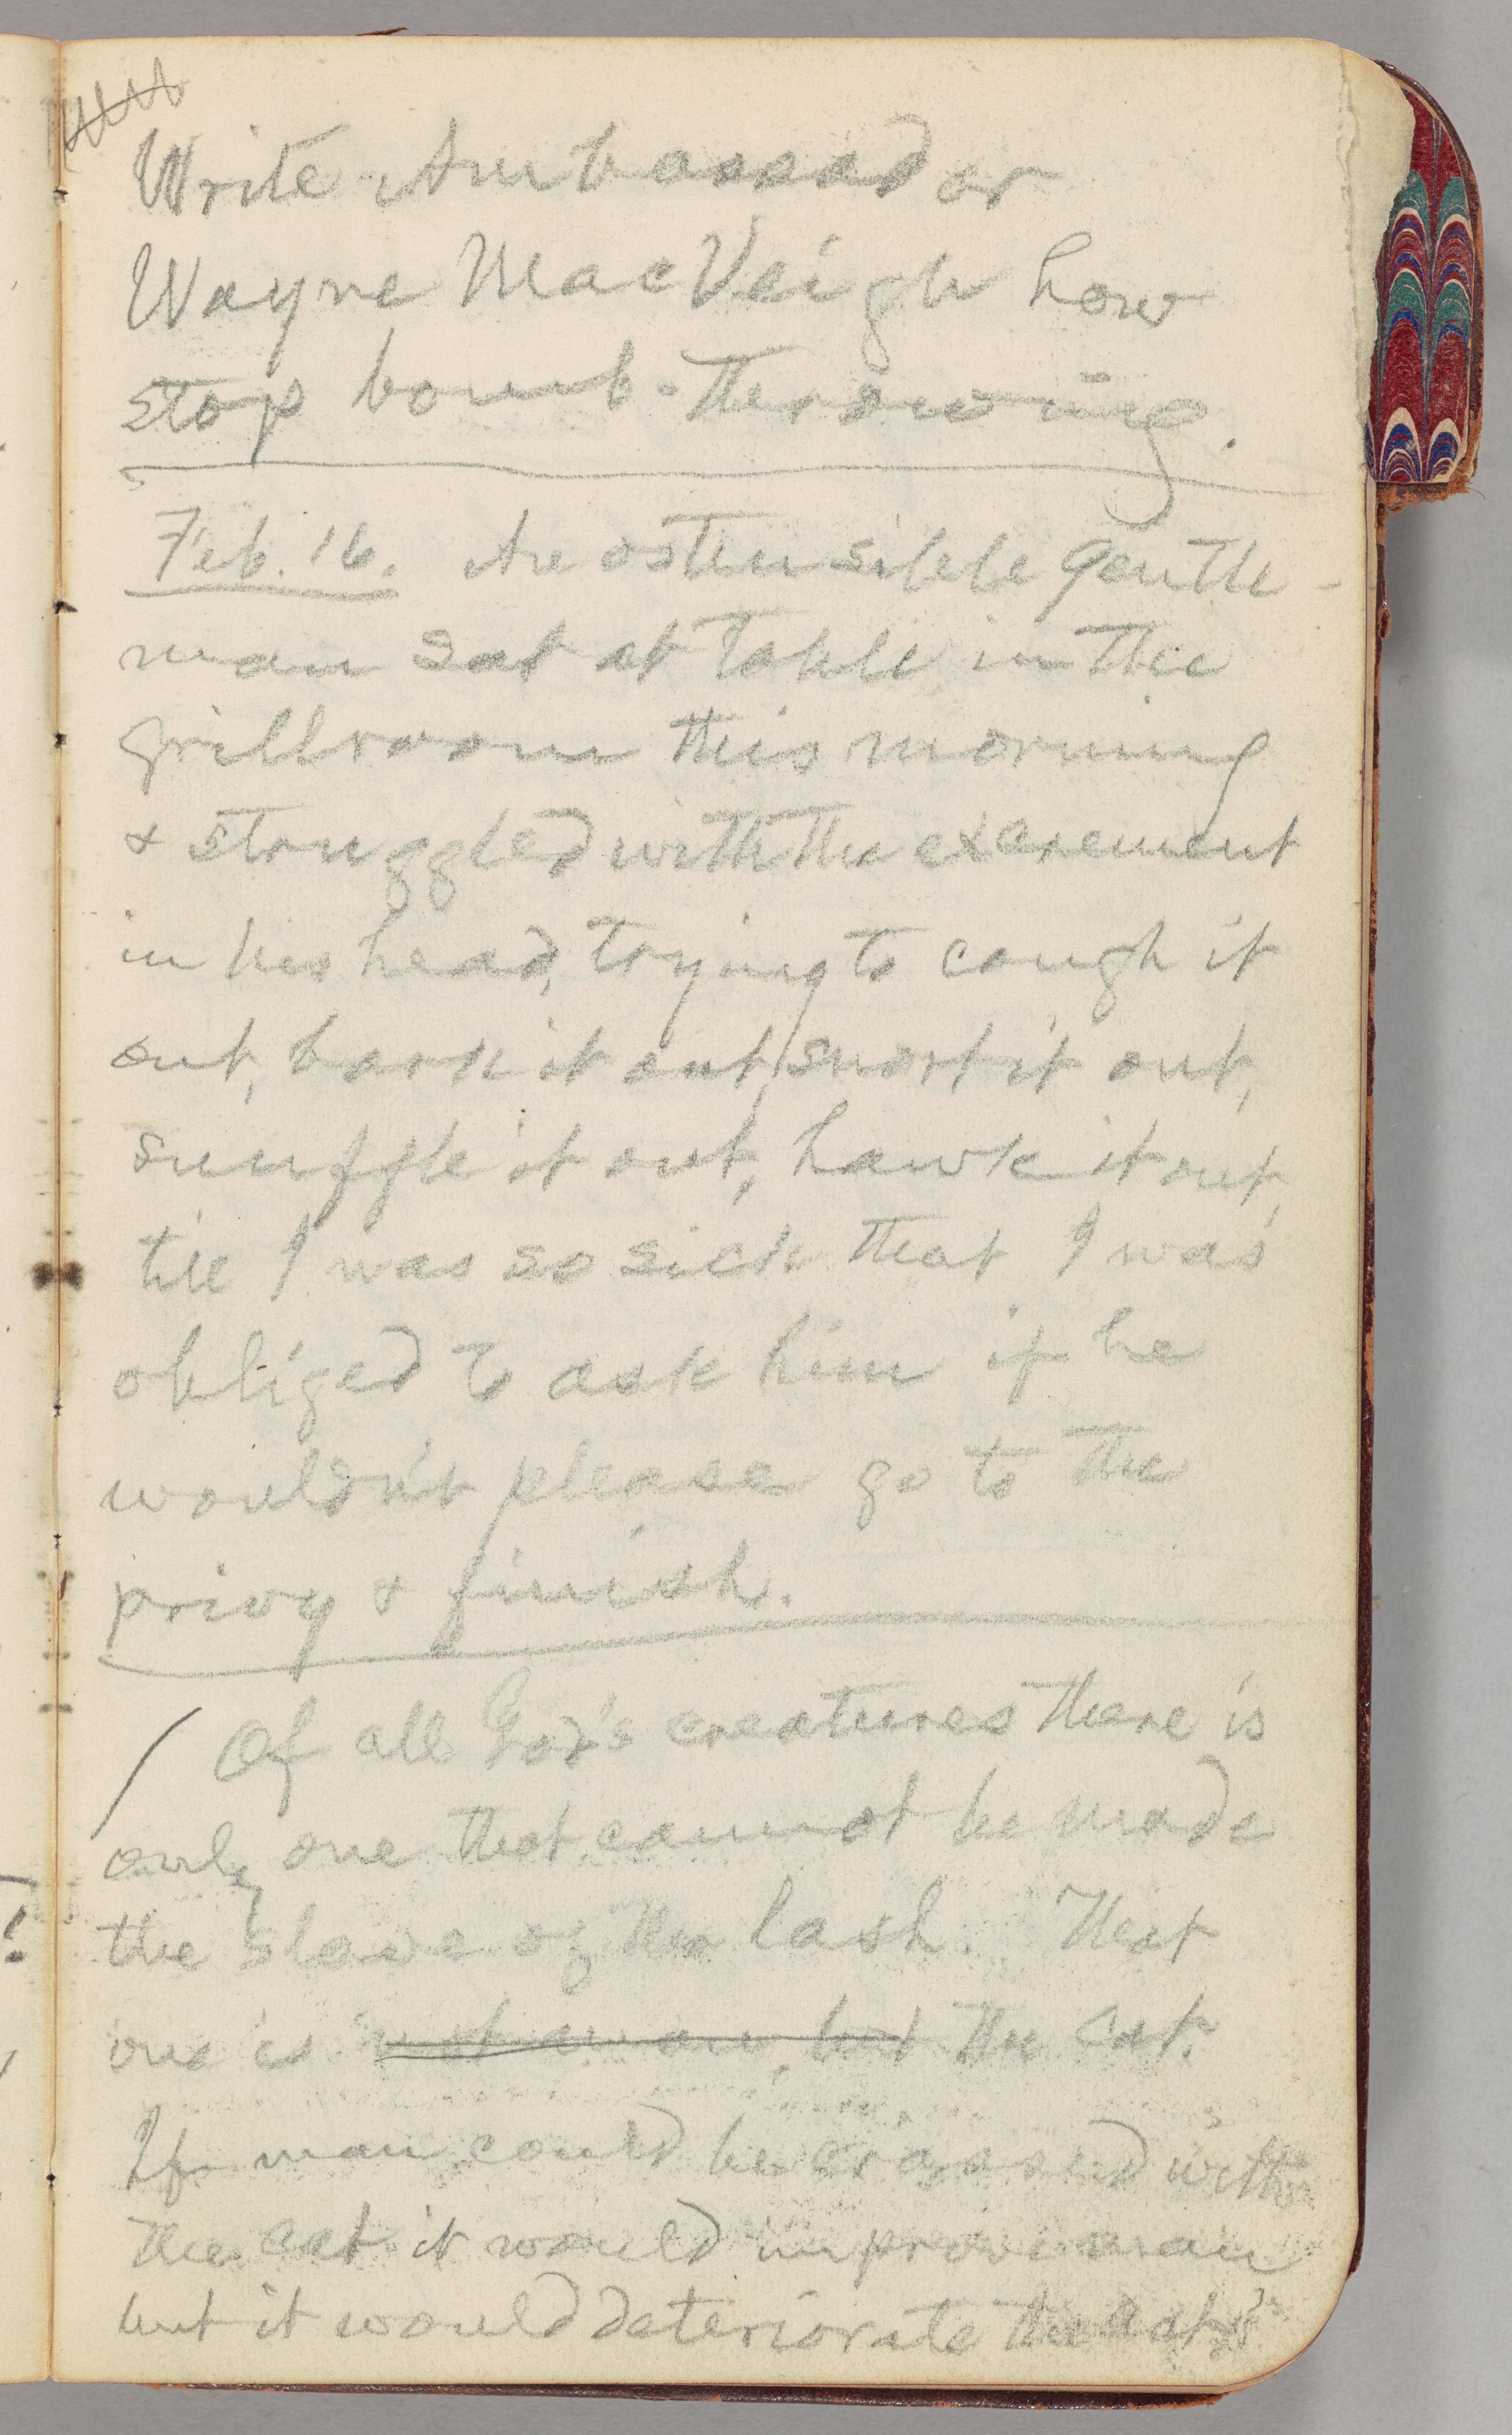 Write Ambassador
Wayne MacVeigh how
stop bomb-throwing.
Feb. 16. An ostensible gentle-
man sat at table in the
grillroom this morning
& struggled with the excrement
in his head, trying to cough it
out, bark it out, snort it out,
snuffle it out, hawk it out,
till I was so sick that I was
obliged to ask him if he
wouldn't please go to the
privy & finish.
/ Of all God's creatures there is
only one that cannot be made
the slave of the lash. That
one is not a man, but the cat.
If man could be crossed with
the cat it would improve man
but it would deteriorate the cat